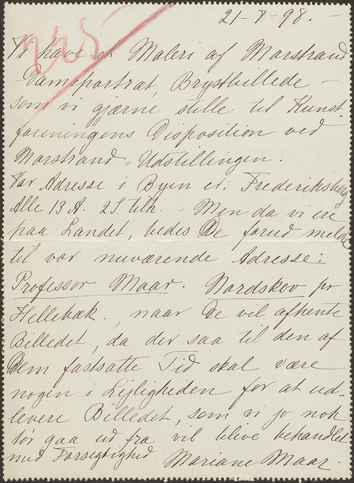 21-8-98.
225
Vi have et Maleri af Marstrand
Dameportræt, Brystbillede –
som vi gjærne stille til Kunst-
foreningens Disposition ved
Marstrand-Udstillingen.
Vor Adresse i Byen er: Frederiksberg
Alle 13 A. 2S. tilh. – Men da vi ere
paa Landet, bedes De forud melde
til vor nuværende Adresse:
Professor Maar. Nordskov pr
Hellebæk, naar De vil afhente
Billedet, da der saa til den af
Dem fastsatte Tid skal være
nogen i Lejligheden for at ud-
levere Billedet, som vi jo nok
tør gaa ud fra vil blive behandlet
med Forsigtighed Mariane Maar.